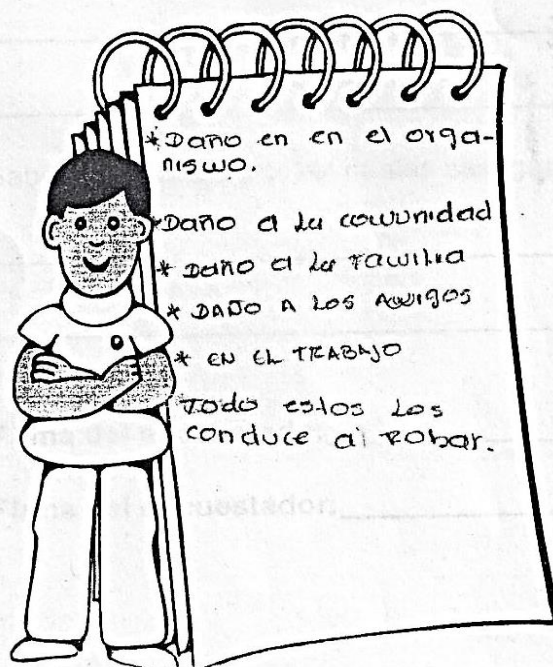 * Daño en en el orga-
nismo.
* Daño a la comunidad
* Daño a la familia
* DAÑO A LOS AMIGOS
* EN EL TRABAJO
Todo estos los
conduce al robar.